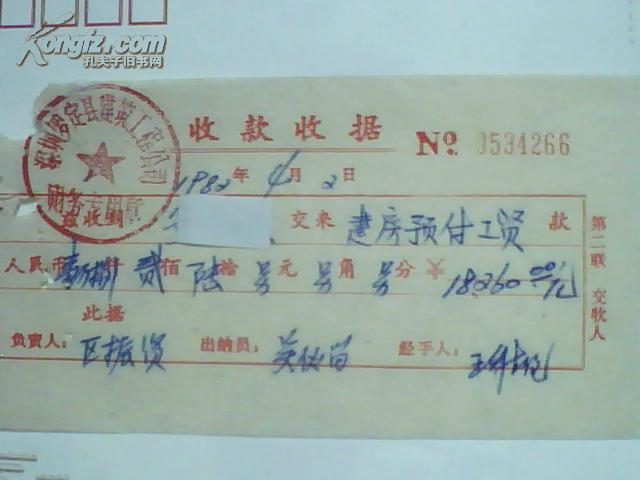 Kongfz.com
孔夫子旧书网
深圳罗定县建筑工程公司
财务专用章
收款收据
No. 0534266
1982年4月2日
兹收到 交来 建房预付工资 款
人民币 贰佰陆拾另元另角另分 ¥18260.00元
此据
负责人: 区振贤 出纳员: 经手人:
第二联 交收人